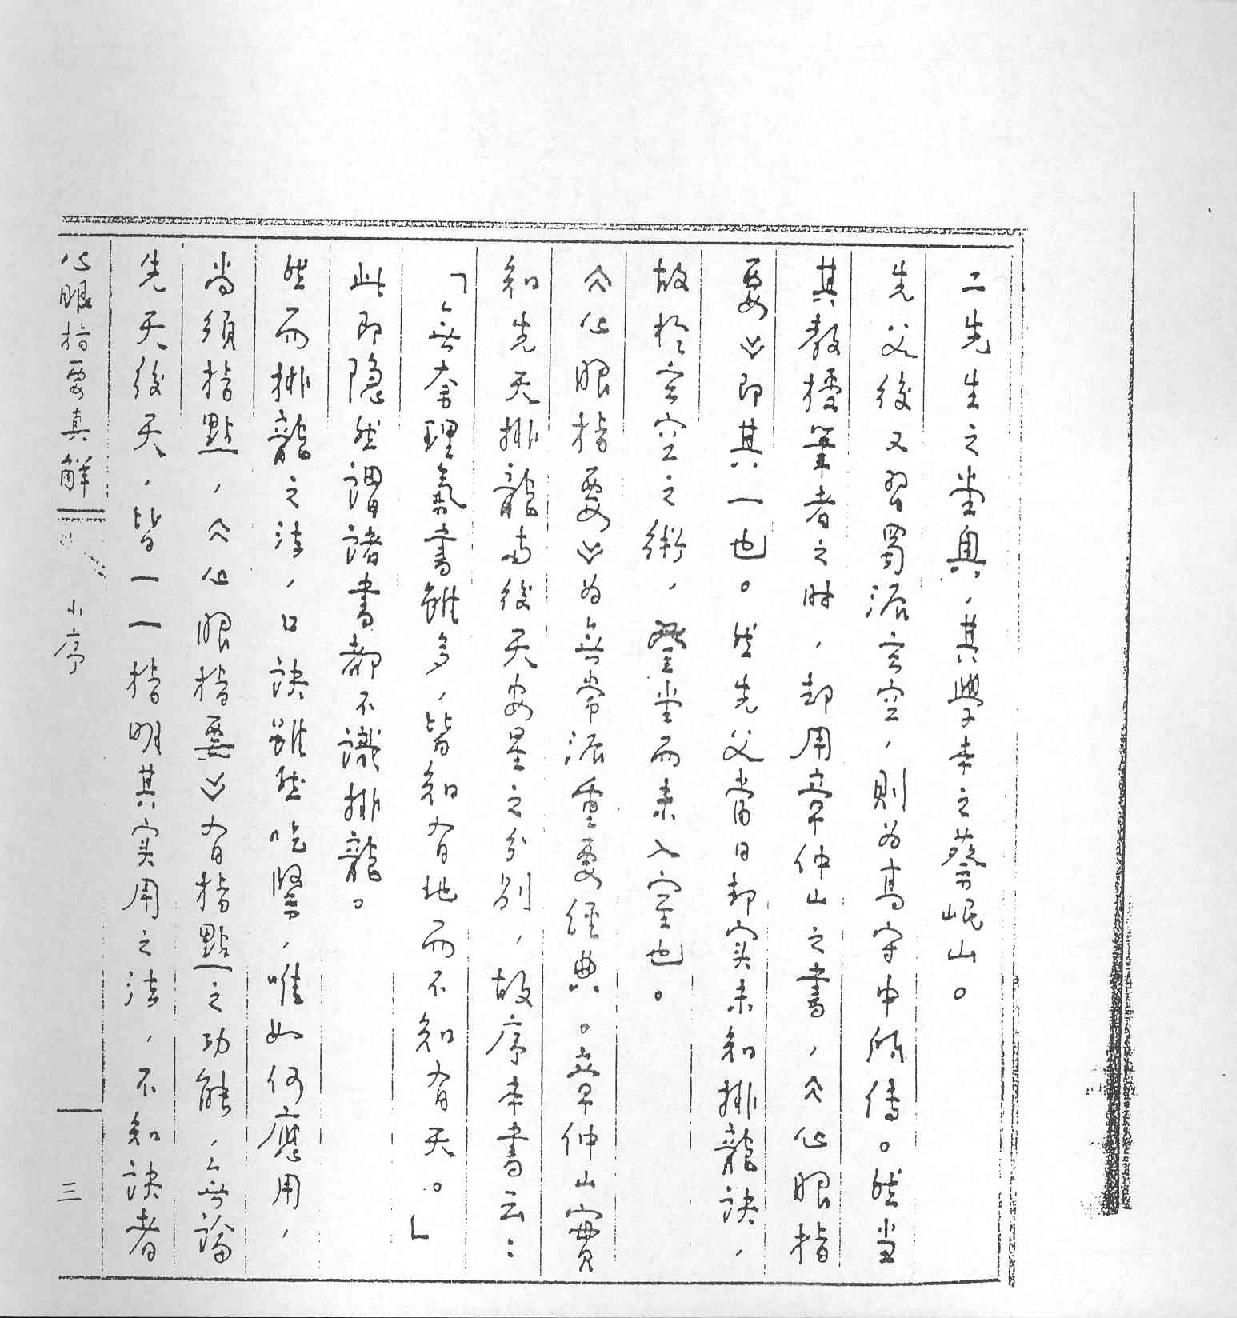 二先生之堂奧，其學本之蔡岷山。
先父後又習蜀派玄空，則為高守中所傳。然當
其教授筆者之時，却用章仲山之書，《心眼指
要》即其一也。然先父當日却实未知排龍訣，
故於玄空之術，登堂而未入室也。
《心眼指要》為無常派重要經典。章仲山實
知先天排龍與後天安星之分别，故序本書云：
「無奈理氣書雖多，皆知有地而不知有天。」
此即隐然謂諸書都不識排龍。
然而排龍之法，口訣雖然吃緊，唯如何應用，
尚須指點，《心眼指要》有指點之功能，無論
先天後天，皆一一指明其实用之法，不知訣者
心眼指要真解 小序 三